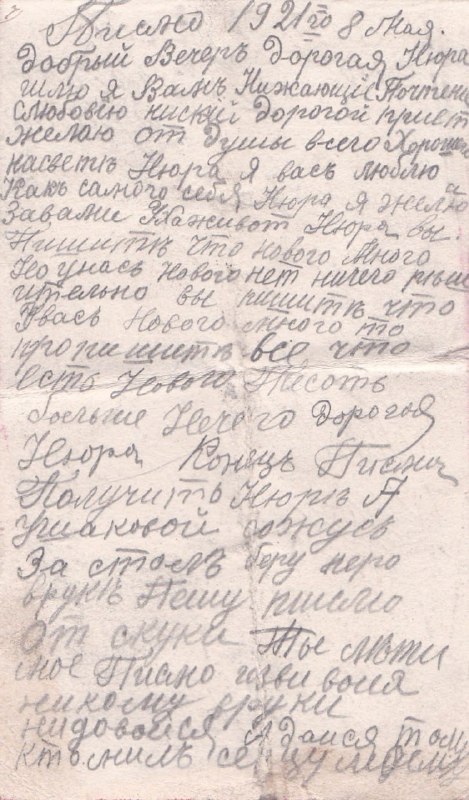 Писмо 1921 го 8 Мая.
Добрый Вечеръ Дорогая Нюра
шлю я Вамъ Нижающий Почтени
слюбовїю ниский Дорогой привт
желаю от Души всего Хорошаго
насветѣ Нюра я васъ люблю
Какъ самого себя Нюра я желаю
Завами Нюра вы.
Пишитѣ что нового Много
Но унасъ нового нет ничего рѣши
ительно вы пишитѣ что
Увасъ Нового Много то
пропишитѣ все что
есть Нового Писать
больше Нечего Дорогая
Нюра Конецъ Писма
Получить Нюрѣ А
ушаковой сажусь
За столъ беру перо
врукѣ Пишу писмо
От скуки Ты лѣти
мое Писмо
никому вруки
нидовойся А дайся тому
кто милъ серцу